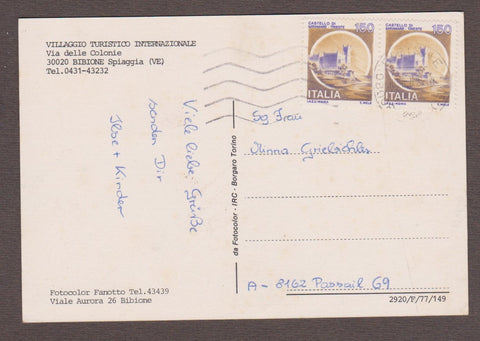 VILLAGGIO TURISTICO INTERNAZIONALE
Via delle Colonie
30020 BIBIONE Spiaggia (VE)
Tel.0431-43232
Viele liebe Grüße
senden Dir
Ilse + Kinder
Fotocolor Fanotto Tel.43439
Viale Aurora 26 Bibione
da Fotocolor - IRC - Borgaro Torino
CASTELLO DI
MIRAMARE - TRIESTE
150
ITALIA
CASTELLO DI
MIRAMARE - TRIESTE
150
ITALIA
Sg Frau
Anna
A - 8162 Passail 69
2920/P/77/149